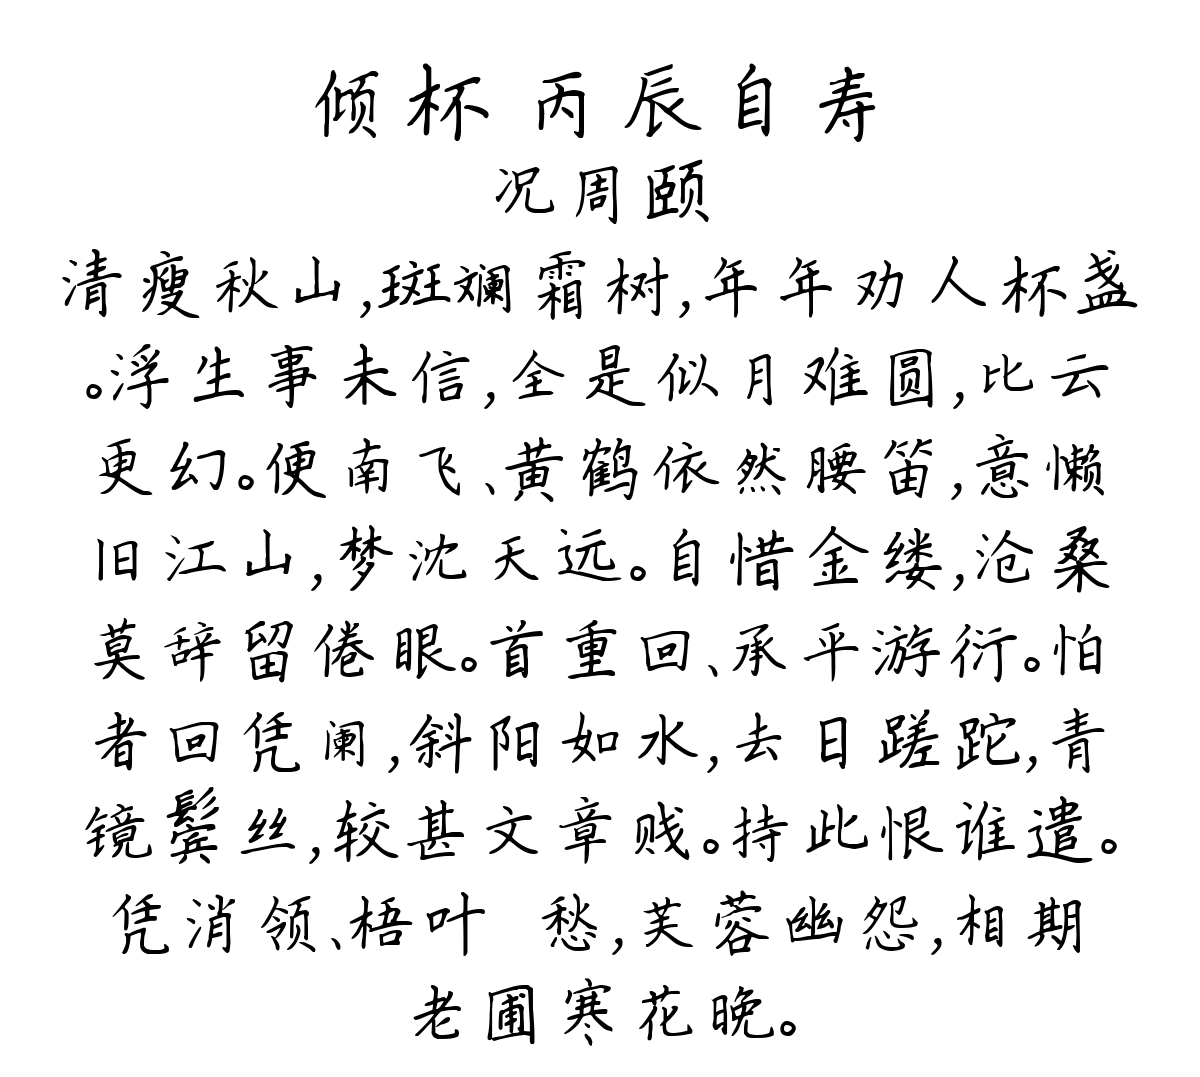 倾杯 丙辰自寿
况周颐
清瘦秋山,斑斓霜树,年年劝人杯盏
。浮生事未信,全是似月难圆,比云
更幻。便南飞、黄鹤依然腰笛,意懒
旧江山,梦沈天远。自惜金缕,沧桑
莫辞留倦眼。首重回、承平游衍。怕
者回凭阑,斜阳如水,去日蹉跎,青
镜鬓丝,较甚文章贱。持此恨谁遣。
凭消领、梧叶 愁,芙蓉幽怨,相期
老圃寒花晚。